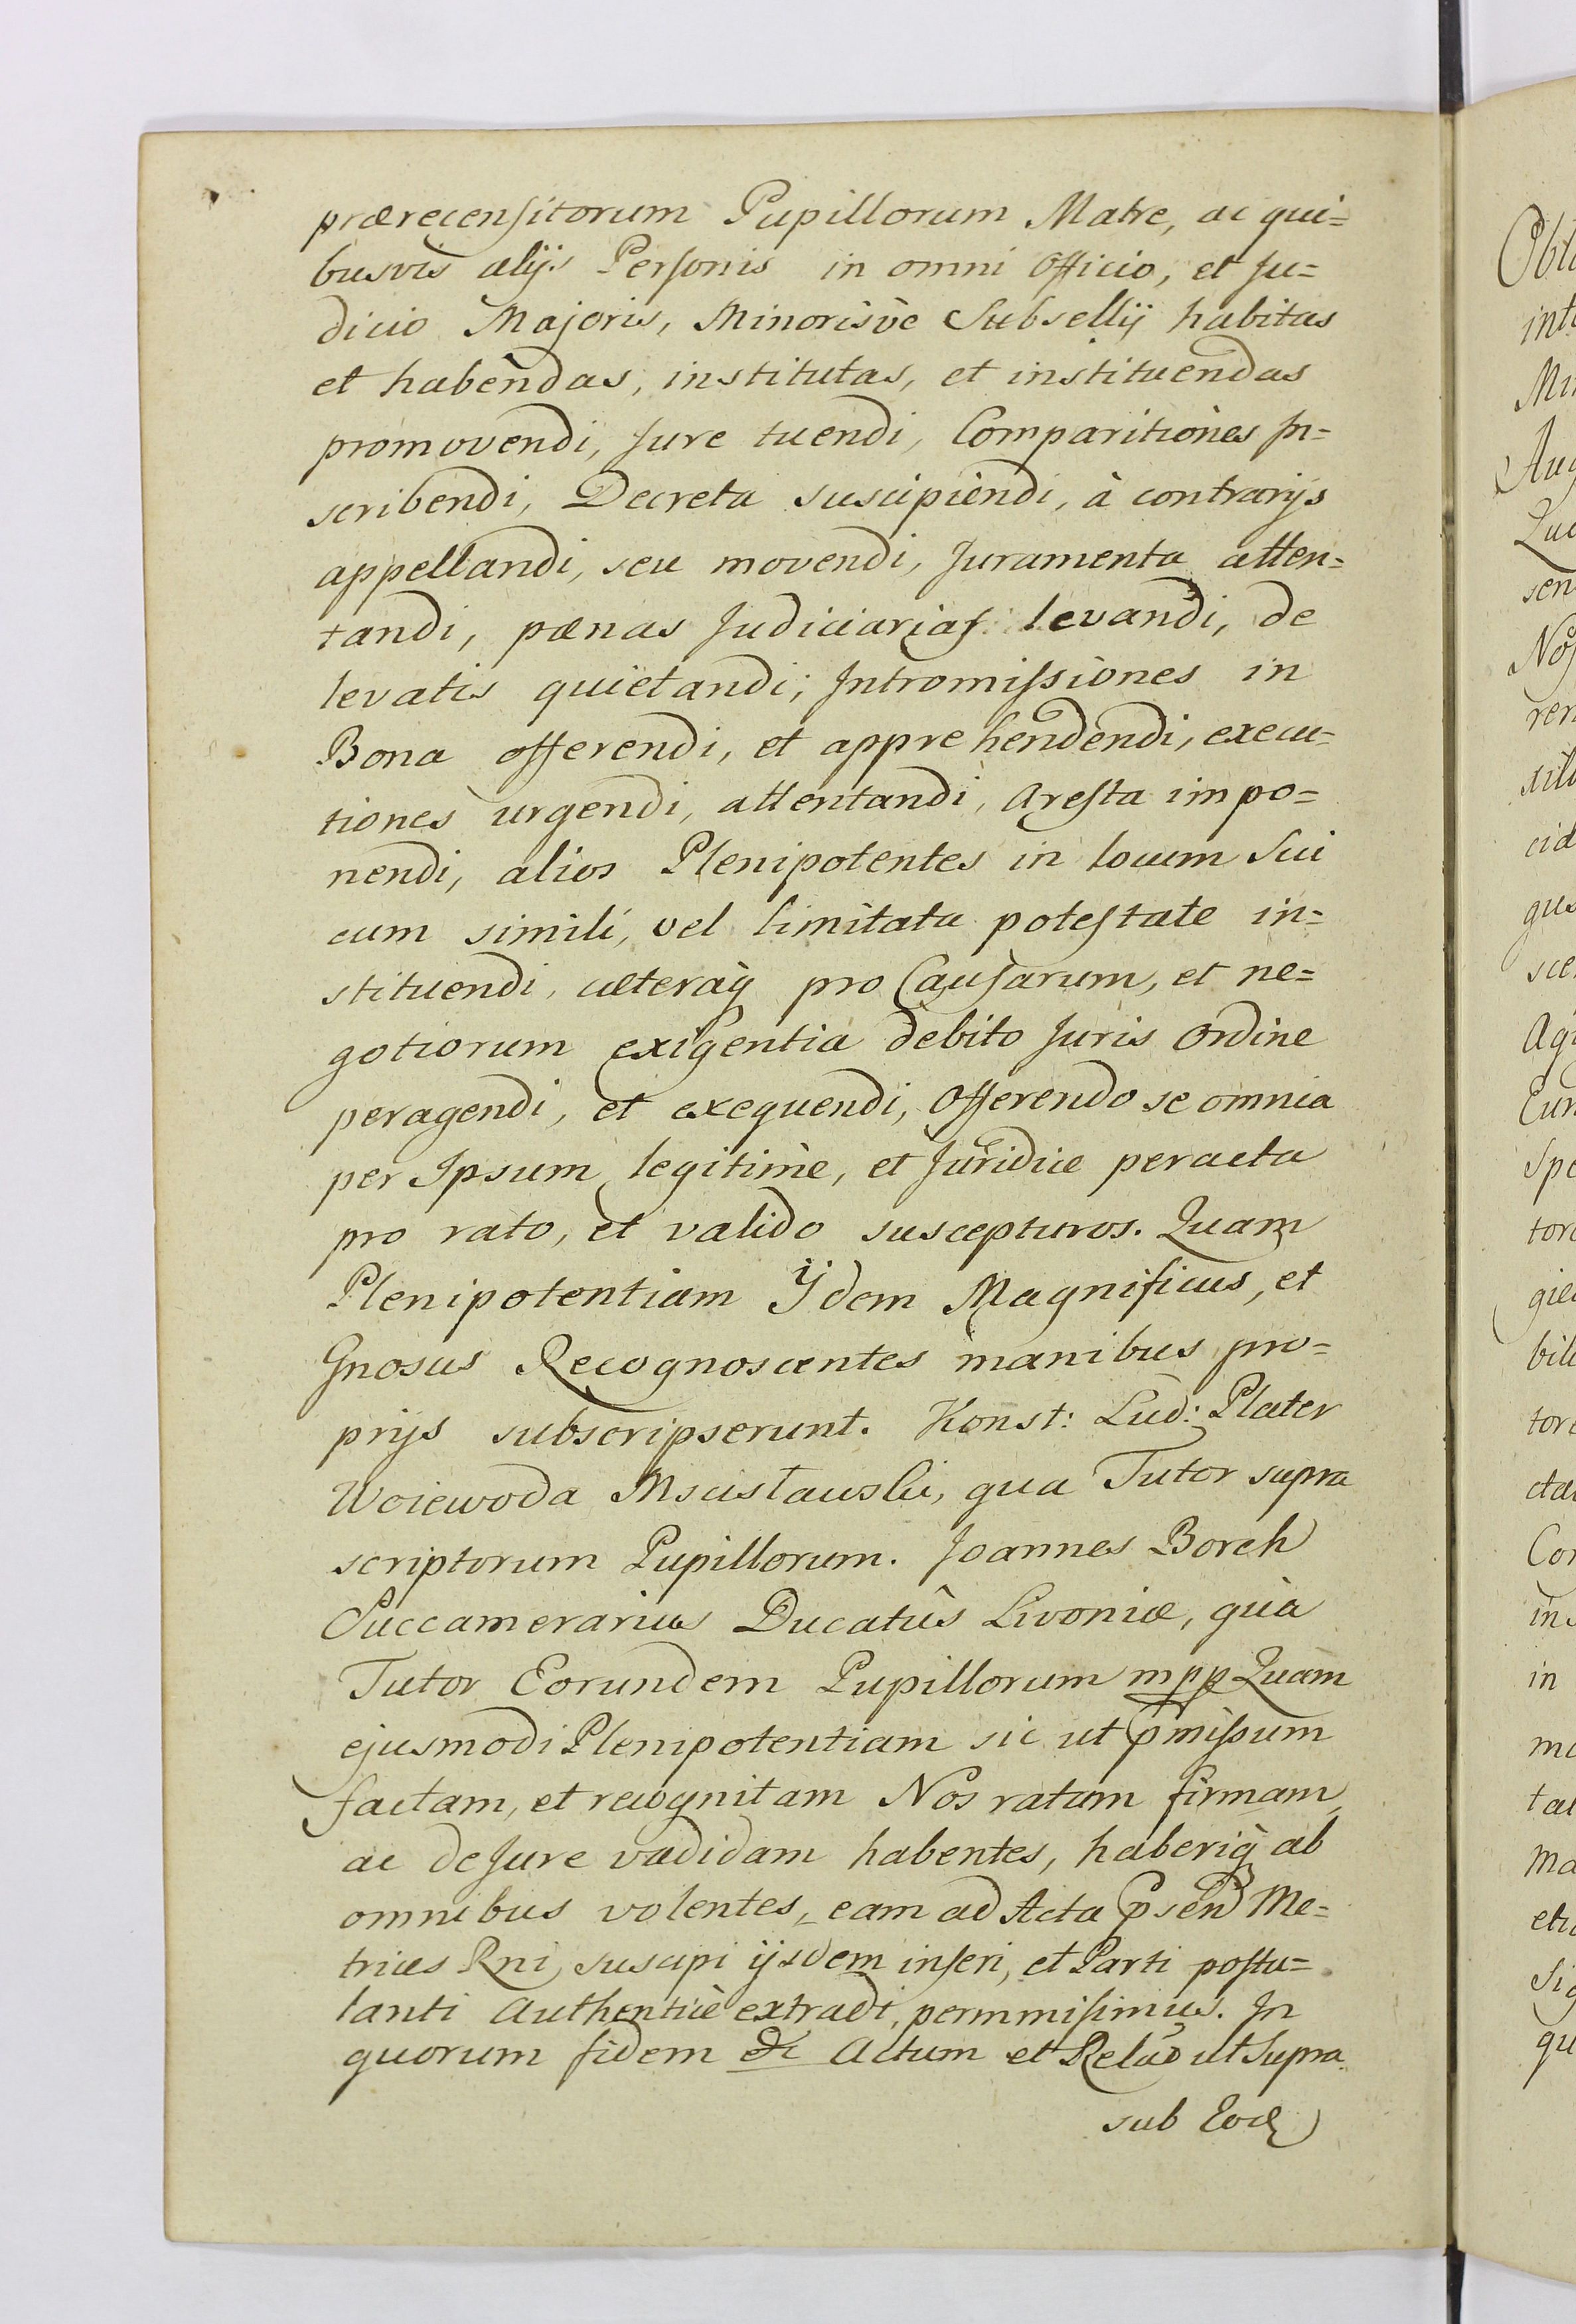 prærecensitorum Pupillorum Matre, ac qui=
busvis alijs Personis in omni Officio, et Ju=
dicio Majoris, Minorisvè Subsellij habitas
et habendas, institutas, et instituendas
promovendi, Jure tuendi, Comparitiones In=
scribendi, Decreta suscipiendi, à contrarijs
appellandi, seu movendi, Juramenta atten=
tandi, pænas Judiciarias levandi, de
levatis quietandi; Intromissiones in
Bona offerendi, et apprehendendi, execu=
tiones urgendi, attentandi, Aresta impo=
nendi, alios Plenipotentes in locum Sui
cum simili, vel limitata potestate in=
stituendi, cæteraq̀ pro Causarum, et ne=
gotiorum exigentia debito Juris Ordine
peragendi, et exequendi, Offerendo se omnia
per Ipsum legitimè, et Juridice peracta
pro rato, et valido suscepturos. Quam
Plenipotentiam Ijdem Magnificus, et
Gnosus Recognoscentes manibus pro=
prijs subscripserunt. Konst: Lud: Plater
Woiewoda Mscisławski, qua Tutor supra
scriptorum Pupillorum. Joannes Borch
Succamerarius Ducatûs Livoniæ, quà
Tutor Eorundem Pupillorum mpp Quam
ejusmodi Plenipotentiam sic ut pmissum
factam, et recognitam Nos ratam firmam,
ac de Jure vadidam habentes, haberiq̀ ab
omnibus volentes, eam ad Acta psend Me=
trices Rni suscipi ijsdem inseri, et Parti postu=
lanti Authenticè extradi, permmisimus. In
quorum fidem &c Actum et Relao ut Supra
sub Eod